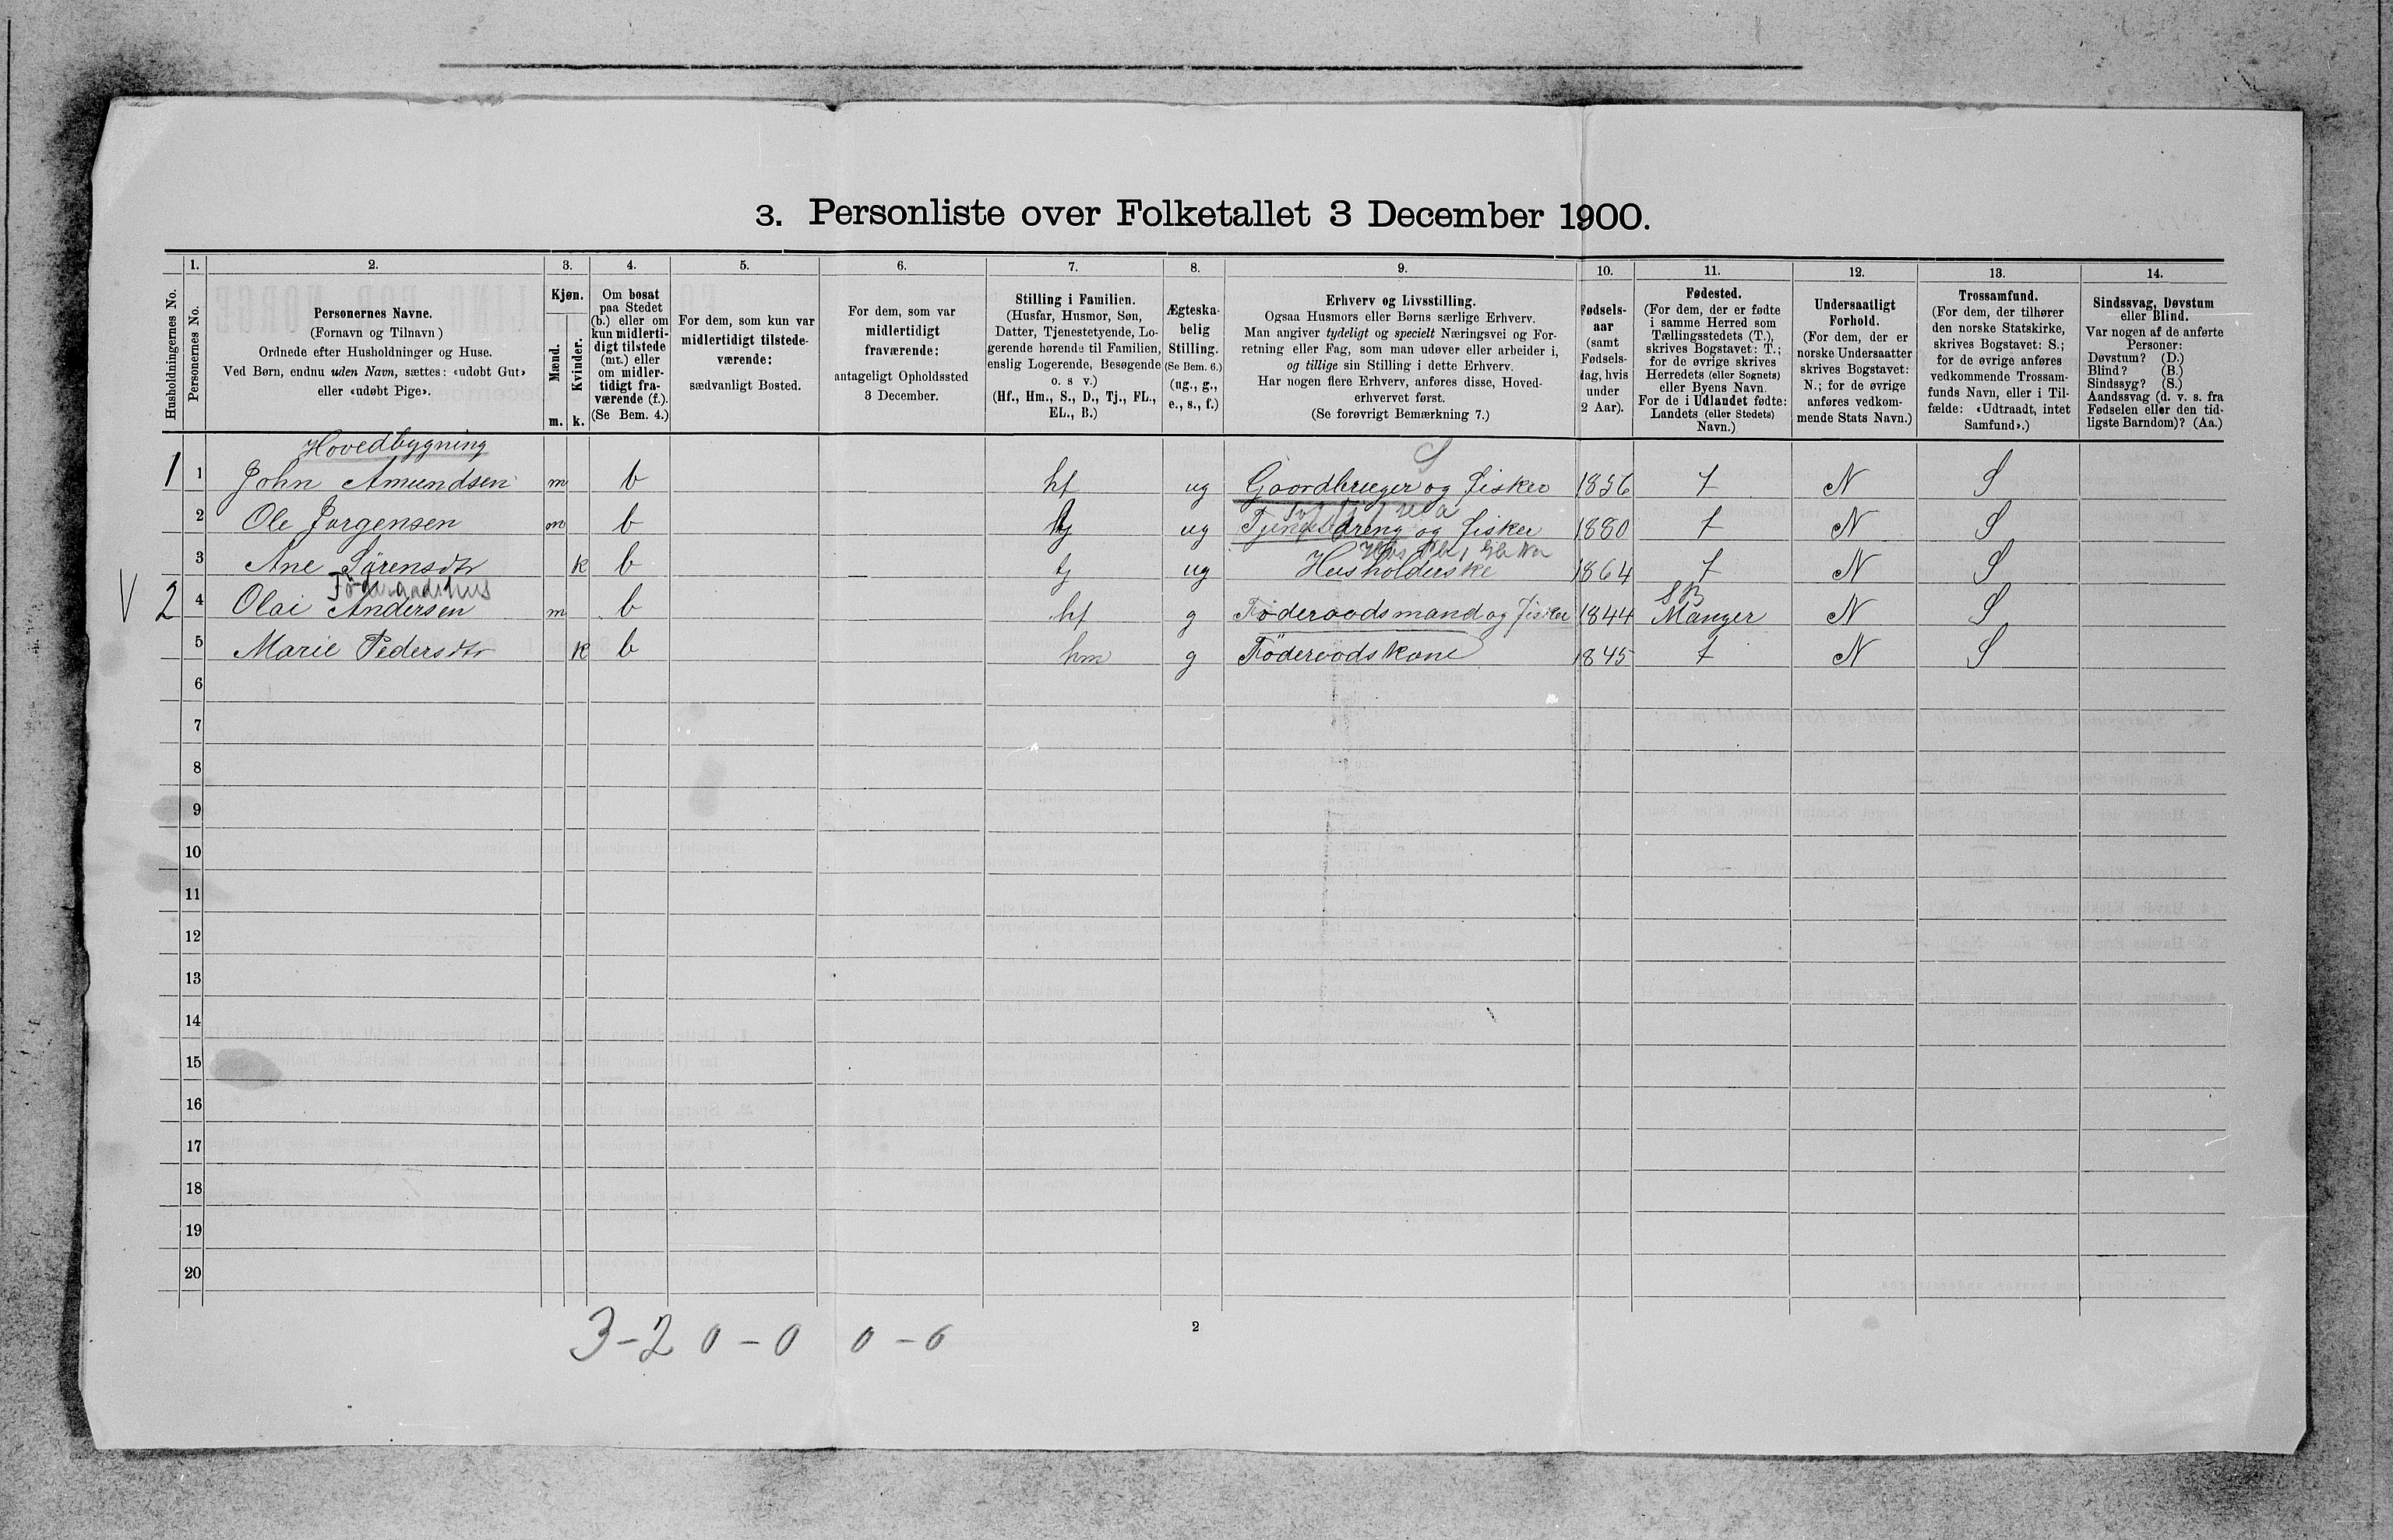 3. Personliste over Folketallet 3 December 1900.
1. 2. 3. 4. 5. 6. 7. 8. 9. 10. 11. 12. 13. 14.
Husholdningernes No.
Personernes No.
Personernes Navne.
(Fornavn og Tilnavn)
Ordnede efter Husholdninger og Huse.
Ved Børn, endnu uden Navn, sættes: «udøbt Gut»
eller «udøbt Pige».
Kjøn.
Mænd.
Kvinder.
m. k.
Om bosat
paa Stedet
(b.) eller om
kun midlerti-
digt tilstede
(mt.) eller
om midler-
tidigt fra-
værende (f.).
(Se Bem. 4.)
For dem, som kun var
midlertidigt tilstede-
værende:
sædvanligt Bosted.
For dem, som var
midlertidigt
fraværende:
antageligt Opholdssted
3 December.
Stilling i Familien.
(Husfar, Husmor, Søn,
Datter, Tjenestetyende, Lo-
gerende hørende til Familien,
enslig Logerende, Besøgende
o. s v.)
(Hf., Hm., S., D., Tj., FL.,
EL., B.)
Ægteska-
belig
Stilling.
(Se Bem. 6.)
(ug., g.,
e., s., f.)
Erhverv og Livsstilling.
Ogsaa Husmors eller Børns særlige Erhverv.
Man angiver tydeligt og specielt Næringsvei og For-
retning eller Fag, som man udøver eller arbeider i,
og tillige sin Stilling i dette Erhverv.
Har nogen flere Erhverv, anføres disse, Hoved-
erhvervet først.
(Se forøvrigt Bemærkning 7.)
Fødsels-
aar
(samt
Fødsels-
dag, hvis
under
2 Aar).
Fødested.
(For dem, der er fødte
i samme Herred som
Tællingsstedets (T.),
skrives Bogstavet: T.;
for de øvrige skrives
Herredets (eller Sognets)
eller Byens Navn.
For de i Udlandet fødte:
Landets (eller Stedets)
Navn.)
Undersaatligt
Forhold.
(For dem, der er
norske Undersaatter
skrives Bogstavet:
N.; for de øvrige
anføres vedkom-
mende Stats Navn.)
Trossamfund.
(For dem, der tilhører
den norske Statskirke,
skrives Bogstavet: S.;
for de øvrige anføres
vedkommende Trossam-
funds Navn, eller i Til-
fælde: «Udtraadt, intet
Samfund».)
Sindssvag, Døvstum
eller Blind.
Var nogen af de anførte
Personer:
Døvstum? (D.)
Blind? (B.)
Sindssyg? (S.)
Aandssvag (d. v. s. fra
Fødselen eller den tid-
ligste Barndom)? (Aa.)
Hovedbygning
S
1 1 John Amundsen m b hf ug Gaardbruger og Fisker 1856 t N S
2 Ole Jørgensen m b tj ug Tjenestdreng og Fisker 1880 t N S
3 Ane Sørensdtr k b tj ug Husholderske 1864 t N S
Föderaadshus
SB
V 2 4 Olai Andersen m b hf g Föderaadsmand og Fisker 1844 Manger N S
5 Marie Pedersdtr k b hm g Föderaadskone 1845 t N S
6
7
8
9
10
11
12
13
14
15
16
17
18
19
20
3-2 0-0 0-0
2